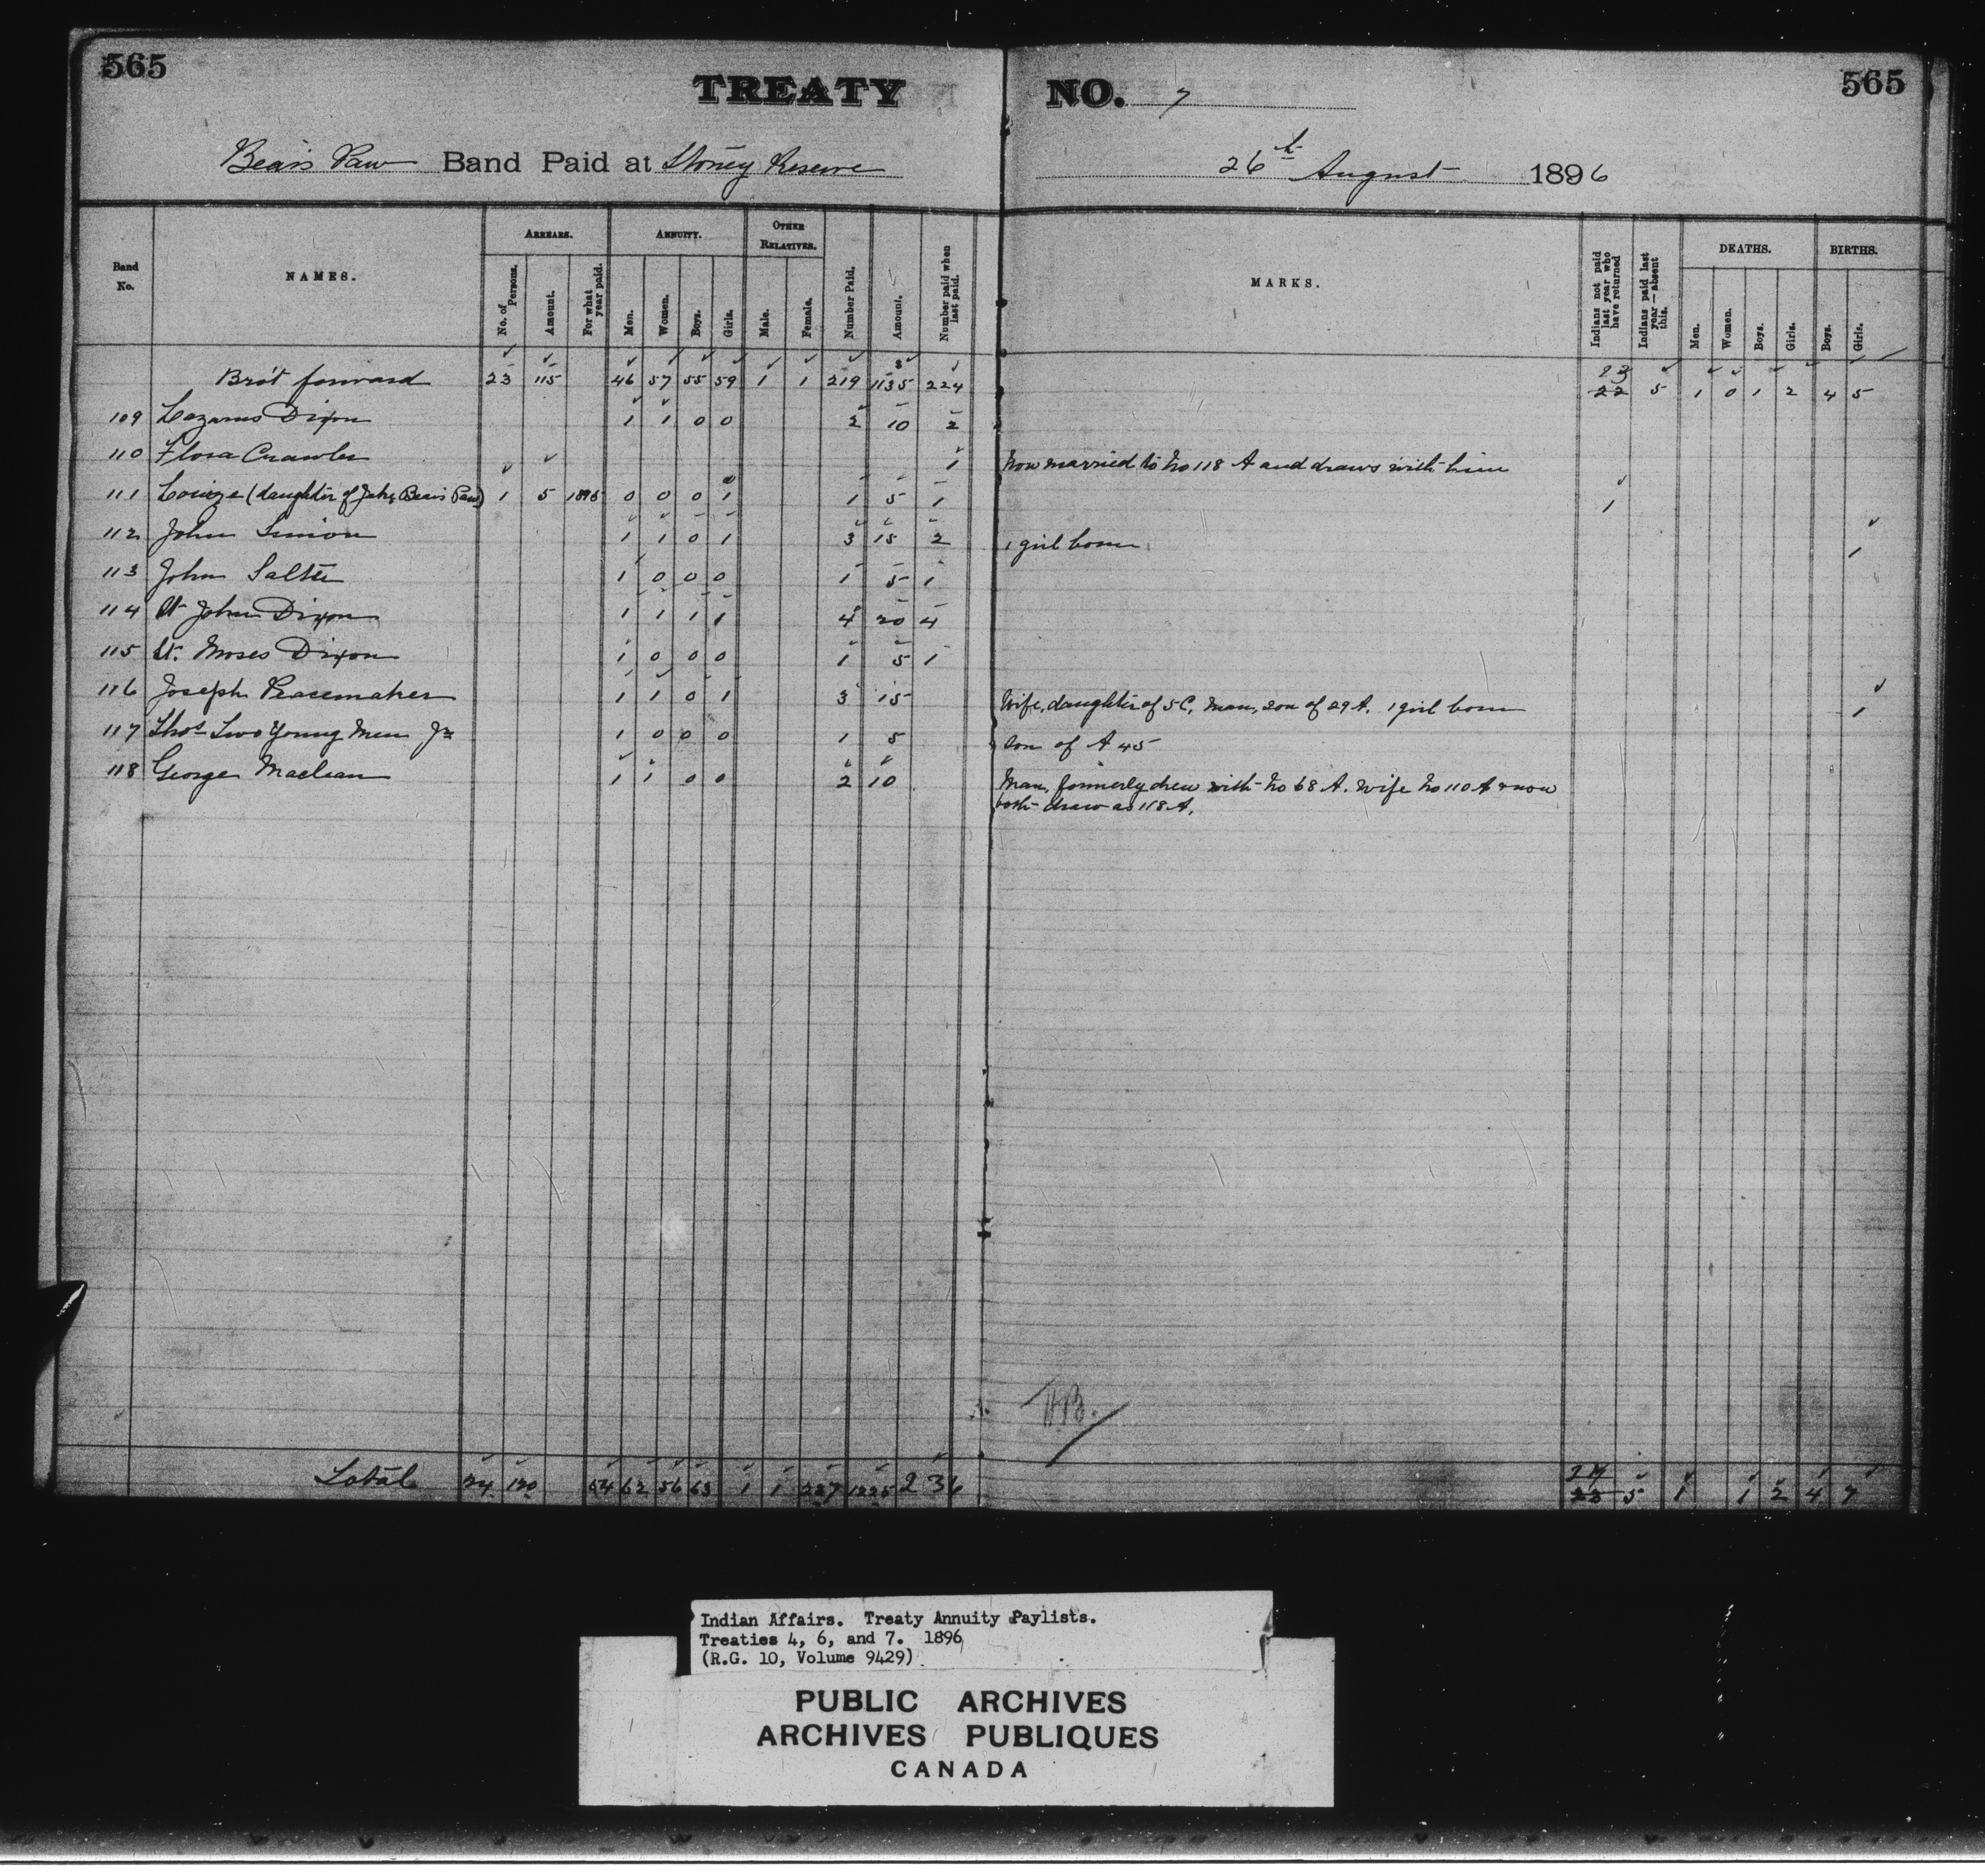 565
565
TREATY NO. 7
Bear's Paw Band Paid at Stoney Reserve 26th August 1896
Band No.
NAMES.
ARREARS.
No. of Persons.
Amount.
For what year paid.
ANNUITY.
Men.
Women.
Boys.
Girls.
OTHER RELATIVES.
Male.
Female.
Number Paid.
Amount.
Number paid when last paid.
MARKS.
Indians not paid last year who have returned
Indians paid last year—absent this.
DEATHS.
Men.
Women.
Boys.
Girls.
BIRTHS.
Boys.
Girls.
Bro't forward 23 115 46 57 55 59 1 1 219 1135 224 23 22 5 1 0 1 2 4 5
109 Lazarus Dixon 1 1 0 0 2 10 2
110 Flora Crawler 1 Now married to No 118 A and draws with him
111 Louize (daughter of Jake Bear's Paw) 1 5 1895 0 0 0 1 1 5 1 1
112 John Simion 1 1 0 1 3 15 2 1 girl born 1
113 John Salter 1 0 0 0 1 5 1
114 St John Dixon 1 1 1 1 4 20 4
115 St. Moses Dixon 1 0 0 0 1 5 1
116 Joseph Peacemaker 1 1 0 1 3 15 Wife, daughter of 5 C, Man, son of 29 A. 1 girl born 1
117 Thos Two Young Men Jr 1 0 0 0 1 5 Son of A 45
118 George Maclean 1 1 0 0 2 10 Man, formerly drew with No 68 A. Wife No 110 A & now
both draw as 118 A.
Total 24 120 54 62 56 63 1 1 237 1225 236 24 23 5 1 1 2 4 7
Indian Affairs. Treaty Annuity Paylists.
Treaties 4, 6, and 7. 1896
(R.G. 10, Volume 9429)
PUBLIC ARCHIVES
ARCHIVES PUBLIQUES
CANADA